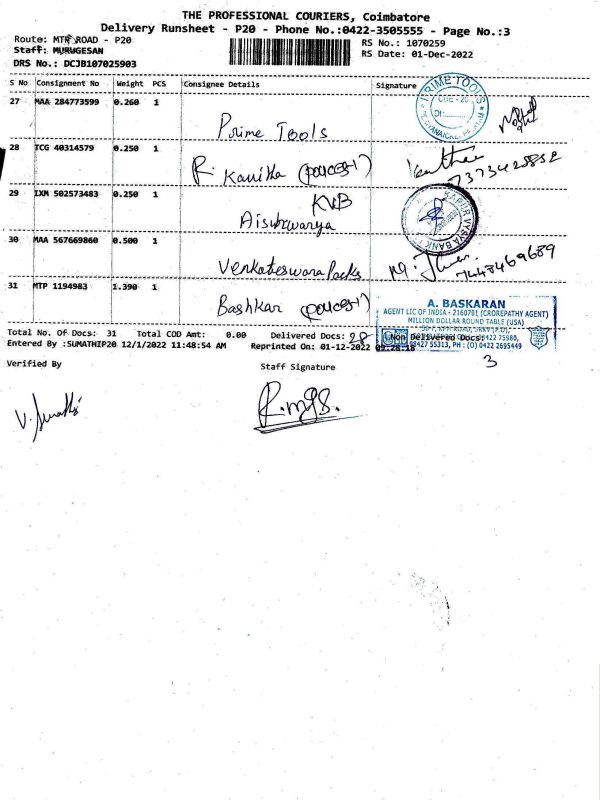 THE PROFESSIONAL COURIERS, Coimbatore
Delivery Runsheet - P20 - Phone No.:0422-3505555 - Page No.:3
Route: MTP ROAD - P20
RS No.: 1070259
Staff: MURUGESAN
RS Date: 01-Dec-2022
DRS No.: DCJB107025903
S No Consignment No Weight PCS Consignee Details Signature
27 MAA 284773599 0.260 1
PRIME TOOLS
CBE - 20
Prime Tools
28 TCG 40314579 0.250 1
R. Kavitha (policies-1)
7373423852
29 IXM 502573483 0.250 1
KVB
Aishwarya
KARUR VYSYA BANK
30 MAA 567669860 0.500 1
Venkateswara Packs
7448469689
31 MTP 1194983 1.390 1
Bashkar (policies-1)
A. BASKARAN
AGENT LIC OF INDIA - 2160701 (CROREPATHY AGENT)
MILLION DOLLAR ROUND TABLE (USA)
Total No. Of Docs: 31 Total COD Amt: 0.00 Delivered Docs: 28 Non Delivered Docs:
3
98427 55313, PH : (O) 0422 2695449
Entered By :SUMATHIP20 12/1/2022 11:48:54 AM Reprinted On: 01-12-2022 09:28:18
Verified By
Staff Signature